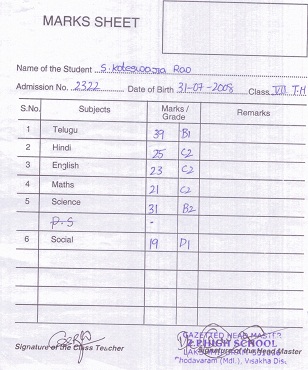 MARKS SHEET
Name of the Student S. Koteswara Rao
Admission No. 2322 Date of Birth 31-07-2008 Class VII T.H
S.No. Subjects Marks / Grade Remarks
1 Telugu 39 B1
2 Hindi 25 C2
3 English 23 C2
4 Maths 21 C2
5 Science 31 B2
P.S -
6 Social 19 D1
GAZETTED HEAD MASTER
HIGH SCHOOL
Signature of the Class Teacher Signature of the Head Master
Chodavaram (Mdl.), Visakha Dis.